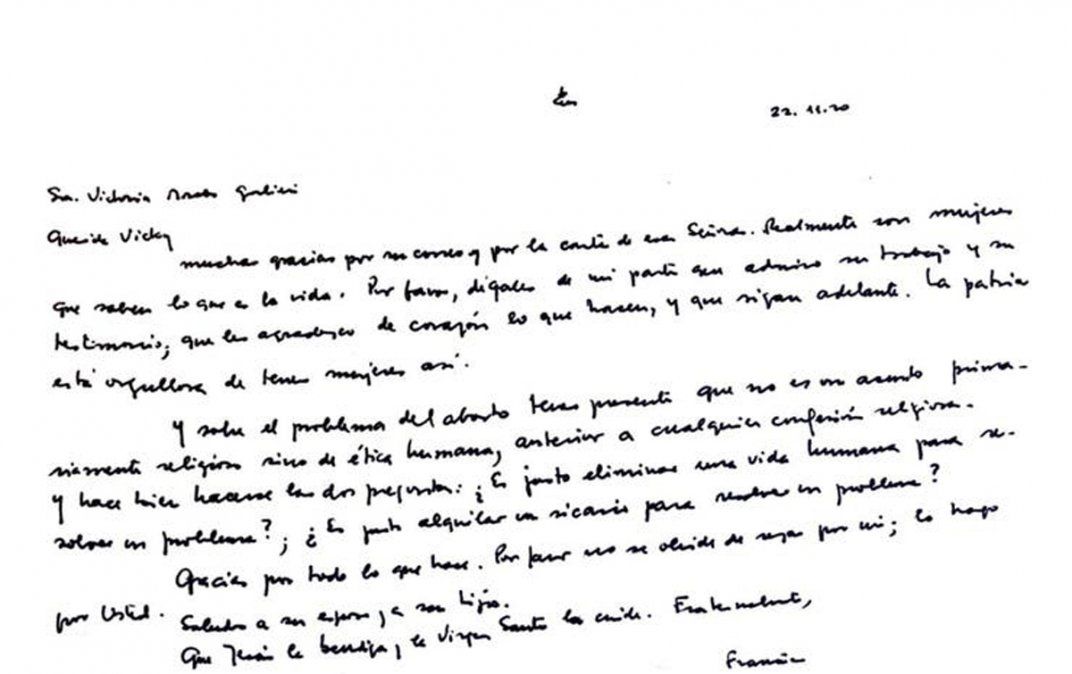 22.11.20
Sra. Victoria Morales
Querida Vicky
muchas gracias por su correo y por la carta de esas Señoras. Realmente son mujeres
que saben lo que es la vida. Por favor, dígales de mi parte que admiro su trabajo y su
testimonio; que les agradezco de corazón lo que hacen, y que sigan adelante. La patria
está orgullosa de tener mujeres así.
Y sobre el problema del aborto tener presente que no es un asunto prima-
riamente religioso sino de ética humana, anterior a cualquier confesión religiosa.
Y hace bien hacerse las dos preguntas: ¿Es justo eliminar una vida humana para re-
solver un problema?; ¿Es justo alquilar un sicario para resolver un problema?
Gracias por todo lo que hace. Por favor no se olvide de rezar por mí; lo hago
por Usted.
Saludos a su esposo y a sus hijos.
Que Jesús la bendiga y la Virgen Santa la cuide. Fraternalmente,
Francisco